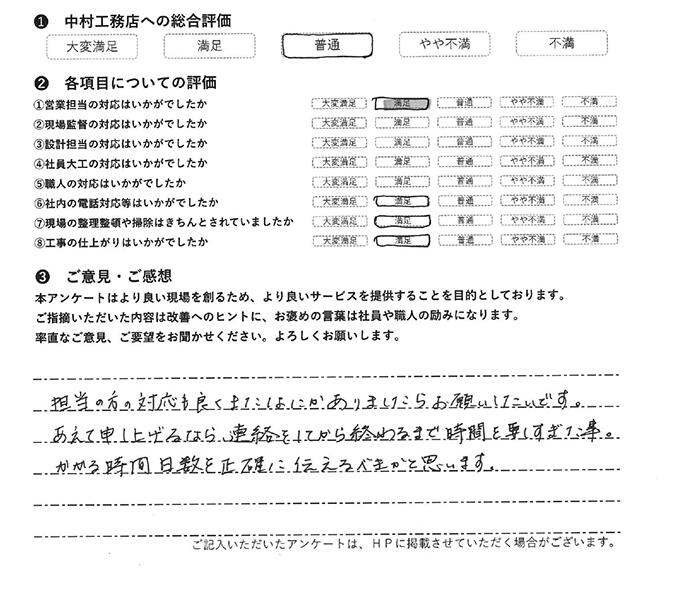 ❶ 中村工務店への総合評価
大変満足 満足 普通 やや不満 不満
❷ 各項目についての評価
①営業担当の対応はいかがでしたか 大変満足 満足 普通 やや不満 不満
②現場監督の対応はいかがでしたか 大変満足 満足 普通 やや不満 不満
③設計担当の対応はいかがでしたか 大変満足 満足 普通 やや不満 不満
④社員大工の対応はいかがでしたか 大変満足 満足 普通 やや不満 不満
⑤職人の対応はいかがでしたか 大変満足 満足 普通 やや不満 不満
⑥社内の電話対応等はいかがでしたか 大変満足 満足 普通 やや不満 不満
⑦現場の整理整頓や掃除はきちんとされていましたか 大変満足 満足 普通 やや不満 不満
⑧工事の仕上がりはいかがでしたか 大変満足 満足 普通 やや不満 不満
❸ ご意見・ご感想
本アンケートはより良い現場を創るため、より良いサービスを提供することを目的としております。
ご指摘いただいた内容は改善へのヒントに、お褒めの言葉は社員や職人の励みになります。
率直なご意見、ご要望をお聞かせください。よろしくお願いします。
担当の方の対応も良くまたなにかありましたらお願いしたいです。
あえて申し上げるなら連絡をしてから終わるまで時間を要しすぎた事。
かかる時間日数を正確に伝えるべきかと思います。
ご記入いただいたアンケートは、HPに掲載させていただく場合がございます。